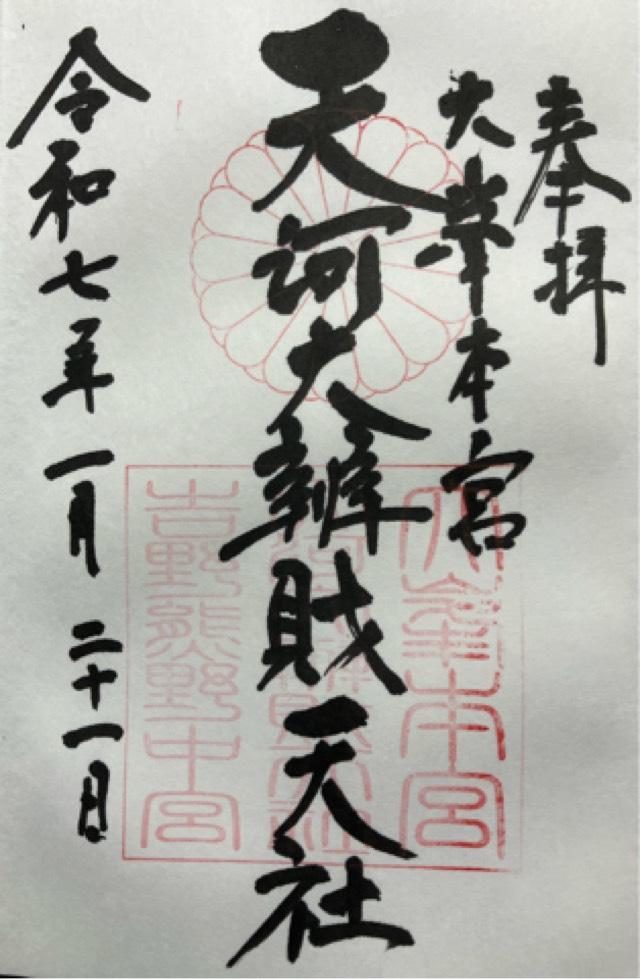 奉拝
大峯本宮
天河大辨財天社
令和七年一月二十一日
大峯本宮
吉野熊野中宮